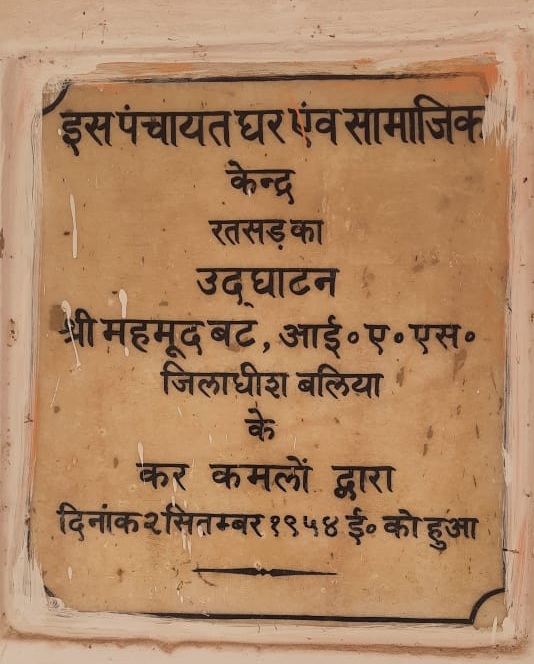 इस पंचायत घर एंव सामाजिक
केन्द्र
रतसड़ का
उद्घाटन
श्री महमूद बट, आई॰ ए॰ एस॰
जिलाधीश बलिया
के
कर कमलों द्वारा
दिनांक २ सितम्बर १९५४ ई॰ को हुआ